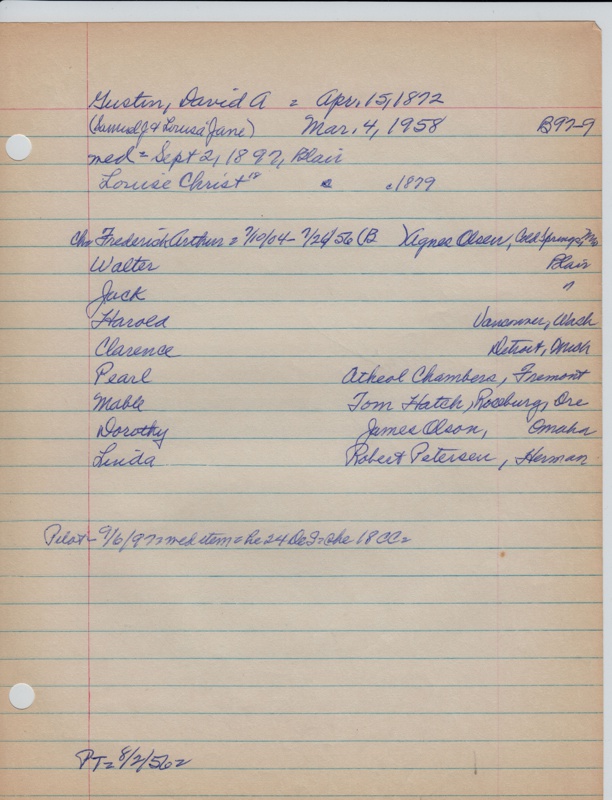 Gustin, David A = Apr. 15, 1872
(Samuel J & Louisa Jane) Mar. 4, 1958 B97-9
med = Sept 2, 1897, Blair
Louise Christ 18 c1879
Ch = Frederick Arthur = 7/10/04 - 7/26/56 (B ) Agnes Olsen, Cold Springs, Mo
Walter Blair
Jack "
Harold Vancouver, Wash
Clarence Detroit, Mich
Pearl Atheol Chambers, Fremont
Mable Tom Hatch, Roseburg, Ore
Dorothy James Olson, Omaha
Linda Robert Petersen, Herman
Pilot - 9/6/97 = med item = he 24 she 18 CC =
PT = 8/2/56 =